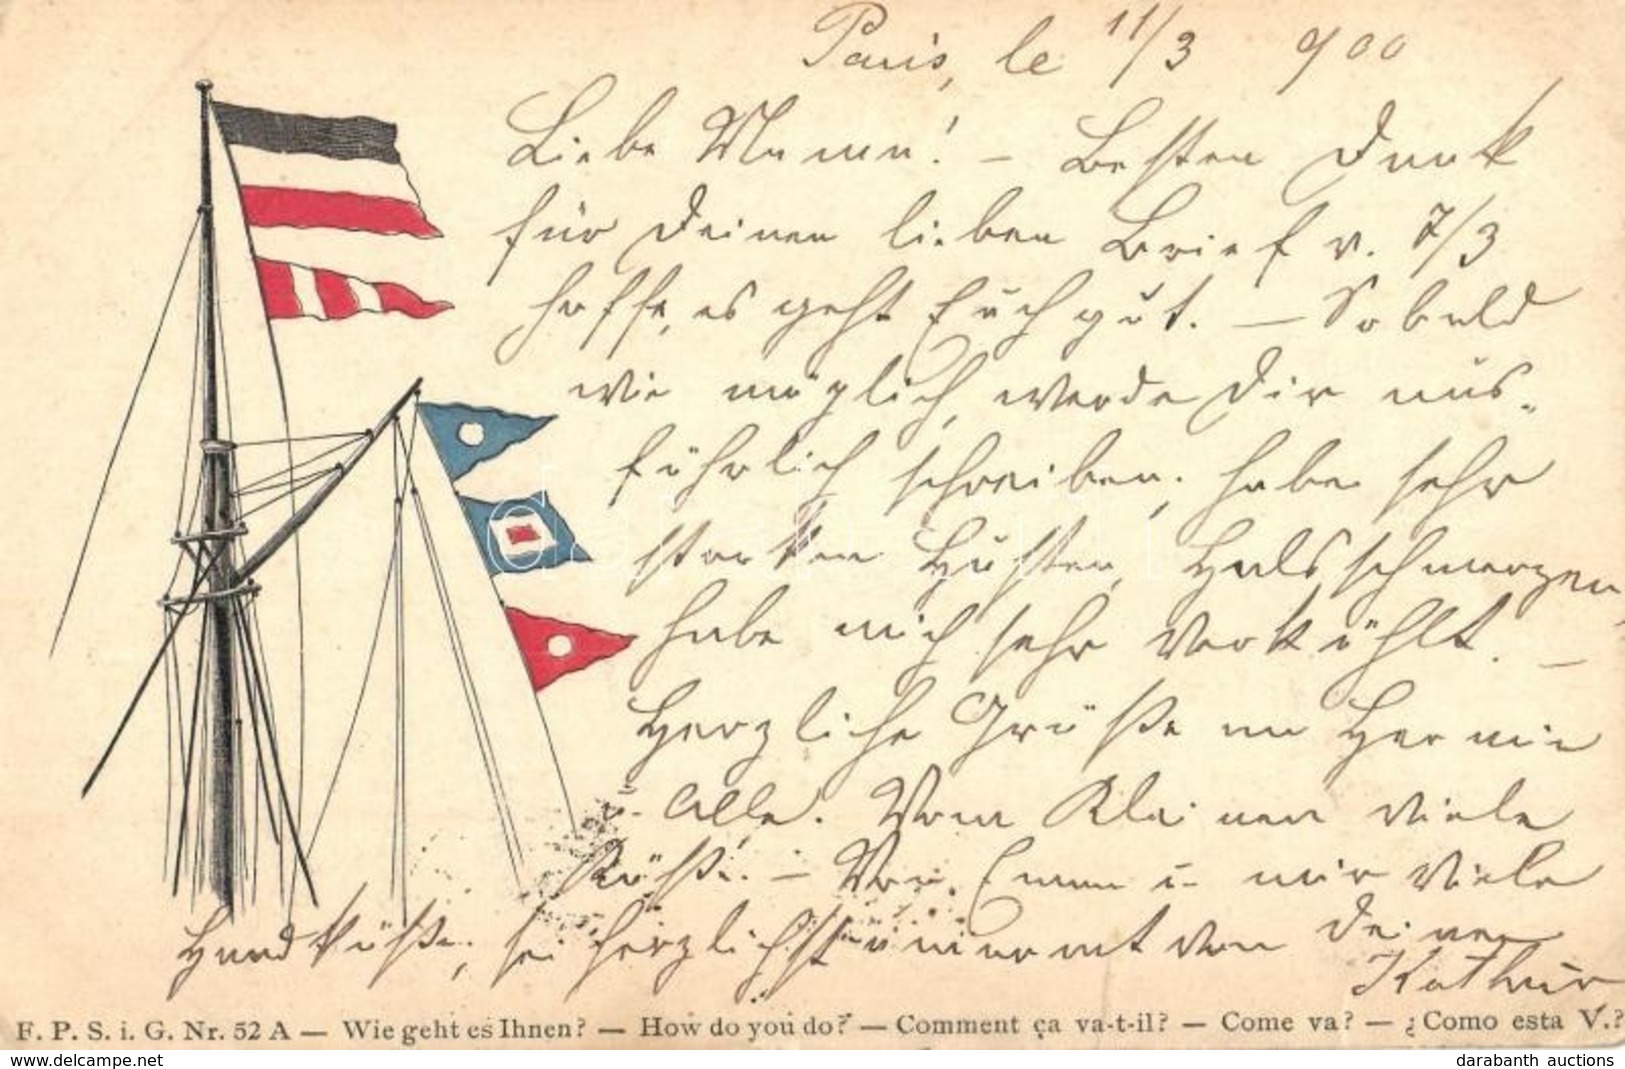 Paris, le 11/3 900
Liebe Mama! – Besten Dank
für Deinen lieben Brief v. 7/3
hoffe, es geht Euch gut. – Sobald
wie möglich, werde Dir aus-
führlich schreiben, habe sehr
starken Husten, Halsschmerzen,
habe mich sehr verkühlt. –
Herzliche Grüße an Hermin
u. Alle. Vom Kleinen viele
Küße. – Von Emma u. mir viele
Handküße, sei herzlichst umarmt von Deiner
F. P. S. i. G. Nr. 52 A — Wie geht es Ihnen? — How do you do? — Comment ça va-t-il? — Come va? — ¿Como esta V.?
delcampe.net
darabanth auctions